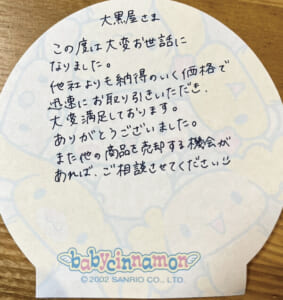 大黒屋さま
この度は大変お世話に
なりました。
他社よりも納得のいく価格で
迅速にお取り引きいただき、
大変満足しております。
ありがとうございました。
また他の商品を売却する機会が
あれば、ご相談させてください
babycinnamon
© 2002 SANRIO CO., LTD.